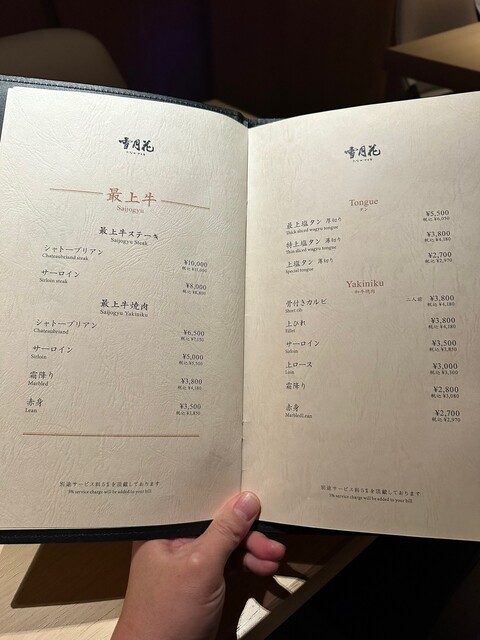 雪月花
最上牛
Saijogyu
最上牛ステーキ
Saijogyu Steak
シャトーブリアン ¥10,000
Chateaubriand steak 税込 ¥11,000
サーロイン ¥8,000
Sirloin steak 税込 ¥8,800
最上牛焼肉
Saijogyu Yakiniku
シャトーブリアン ¥6,500
Chateaubriand 税込 ¥7,150
サーロイン ¥5,000
Sirloin 税込 ¥5,500
霜降り ¥3,800
Marbled 税込 ¥4,180
赤身 ¥3,500
Lean 税込 ¥3,850
別途サービス料5%を頂戴しております
5% service charge will be added to your bill
雪月花
Tongue
タン
最上塩タン 厚切り ¥5,500
Thick sliced wagyu tongue 税込 ¥6,050
特上塩タン 薄切り ¥3,800
Thin sliced wagyu tongue 税込 ¥4,180
上塩タン 薄切り ¥2,700
Special tongue 税込 ¥2,970
Yakiniku
和牛焼肉
骨付きカルビ 二人前 ¥3,800
Short rib 税込 ¥4,180
上ひれ ¥3,800
Fillet 税込 ¥4,180
サーロイン ¥3,500
Sirloin 税込 ¥3,850
上ロース ¥3,000
Loin 税込 ¥3,300
霜降り ¥2,800
税込 ¥3,080
赤身 ¥2,700
Marbled Lean 税込 ¥2,970
別途サービス料5%を頂戴しております
5% service charge will be added to your bill